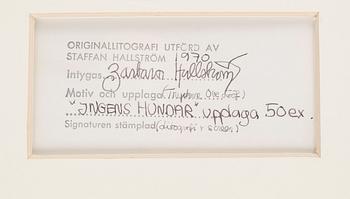 ORIGINALLITOGRAFI UTFÖRD AV
STAFFAN HALLSTRÖM 1970
Intygas Barbara Hallström
Motiv och upplaga
"INGENS HUNDAR" upplaga 50 ex.
Signaturen stämplad